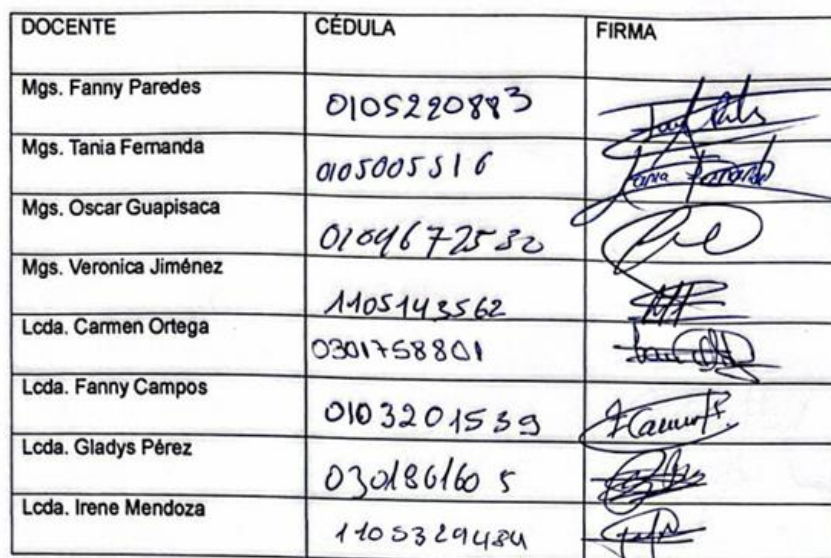 DOCENTE CÉDULA FIRMA
Mgs. Fanny Paredes 0105220883
Mgs. Tania Fernanda 0105005516 Tania Fernanda
Mgs. Oscar Guapisaca 0104672532
Mgs. Veronica Jiménez 1105143562
Lcda. Carmen Ortega 0301758801
Lcda. Fanny Campos 0103201539
Lcda. Gladys Pérez 0301861605
Lcda. Irene Mendoza 1105329484